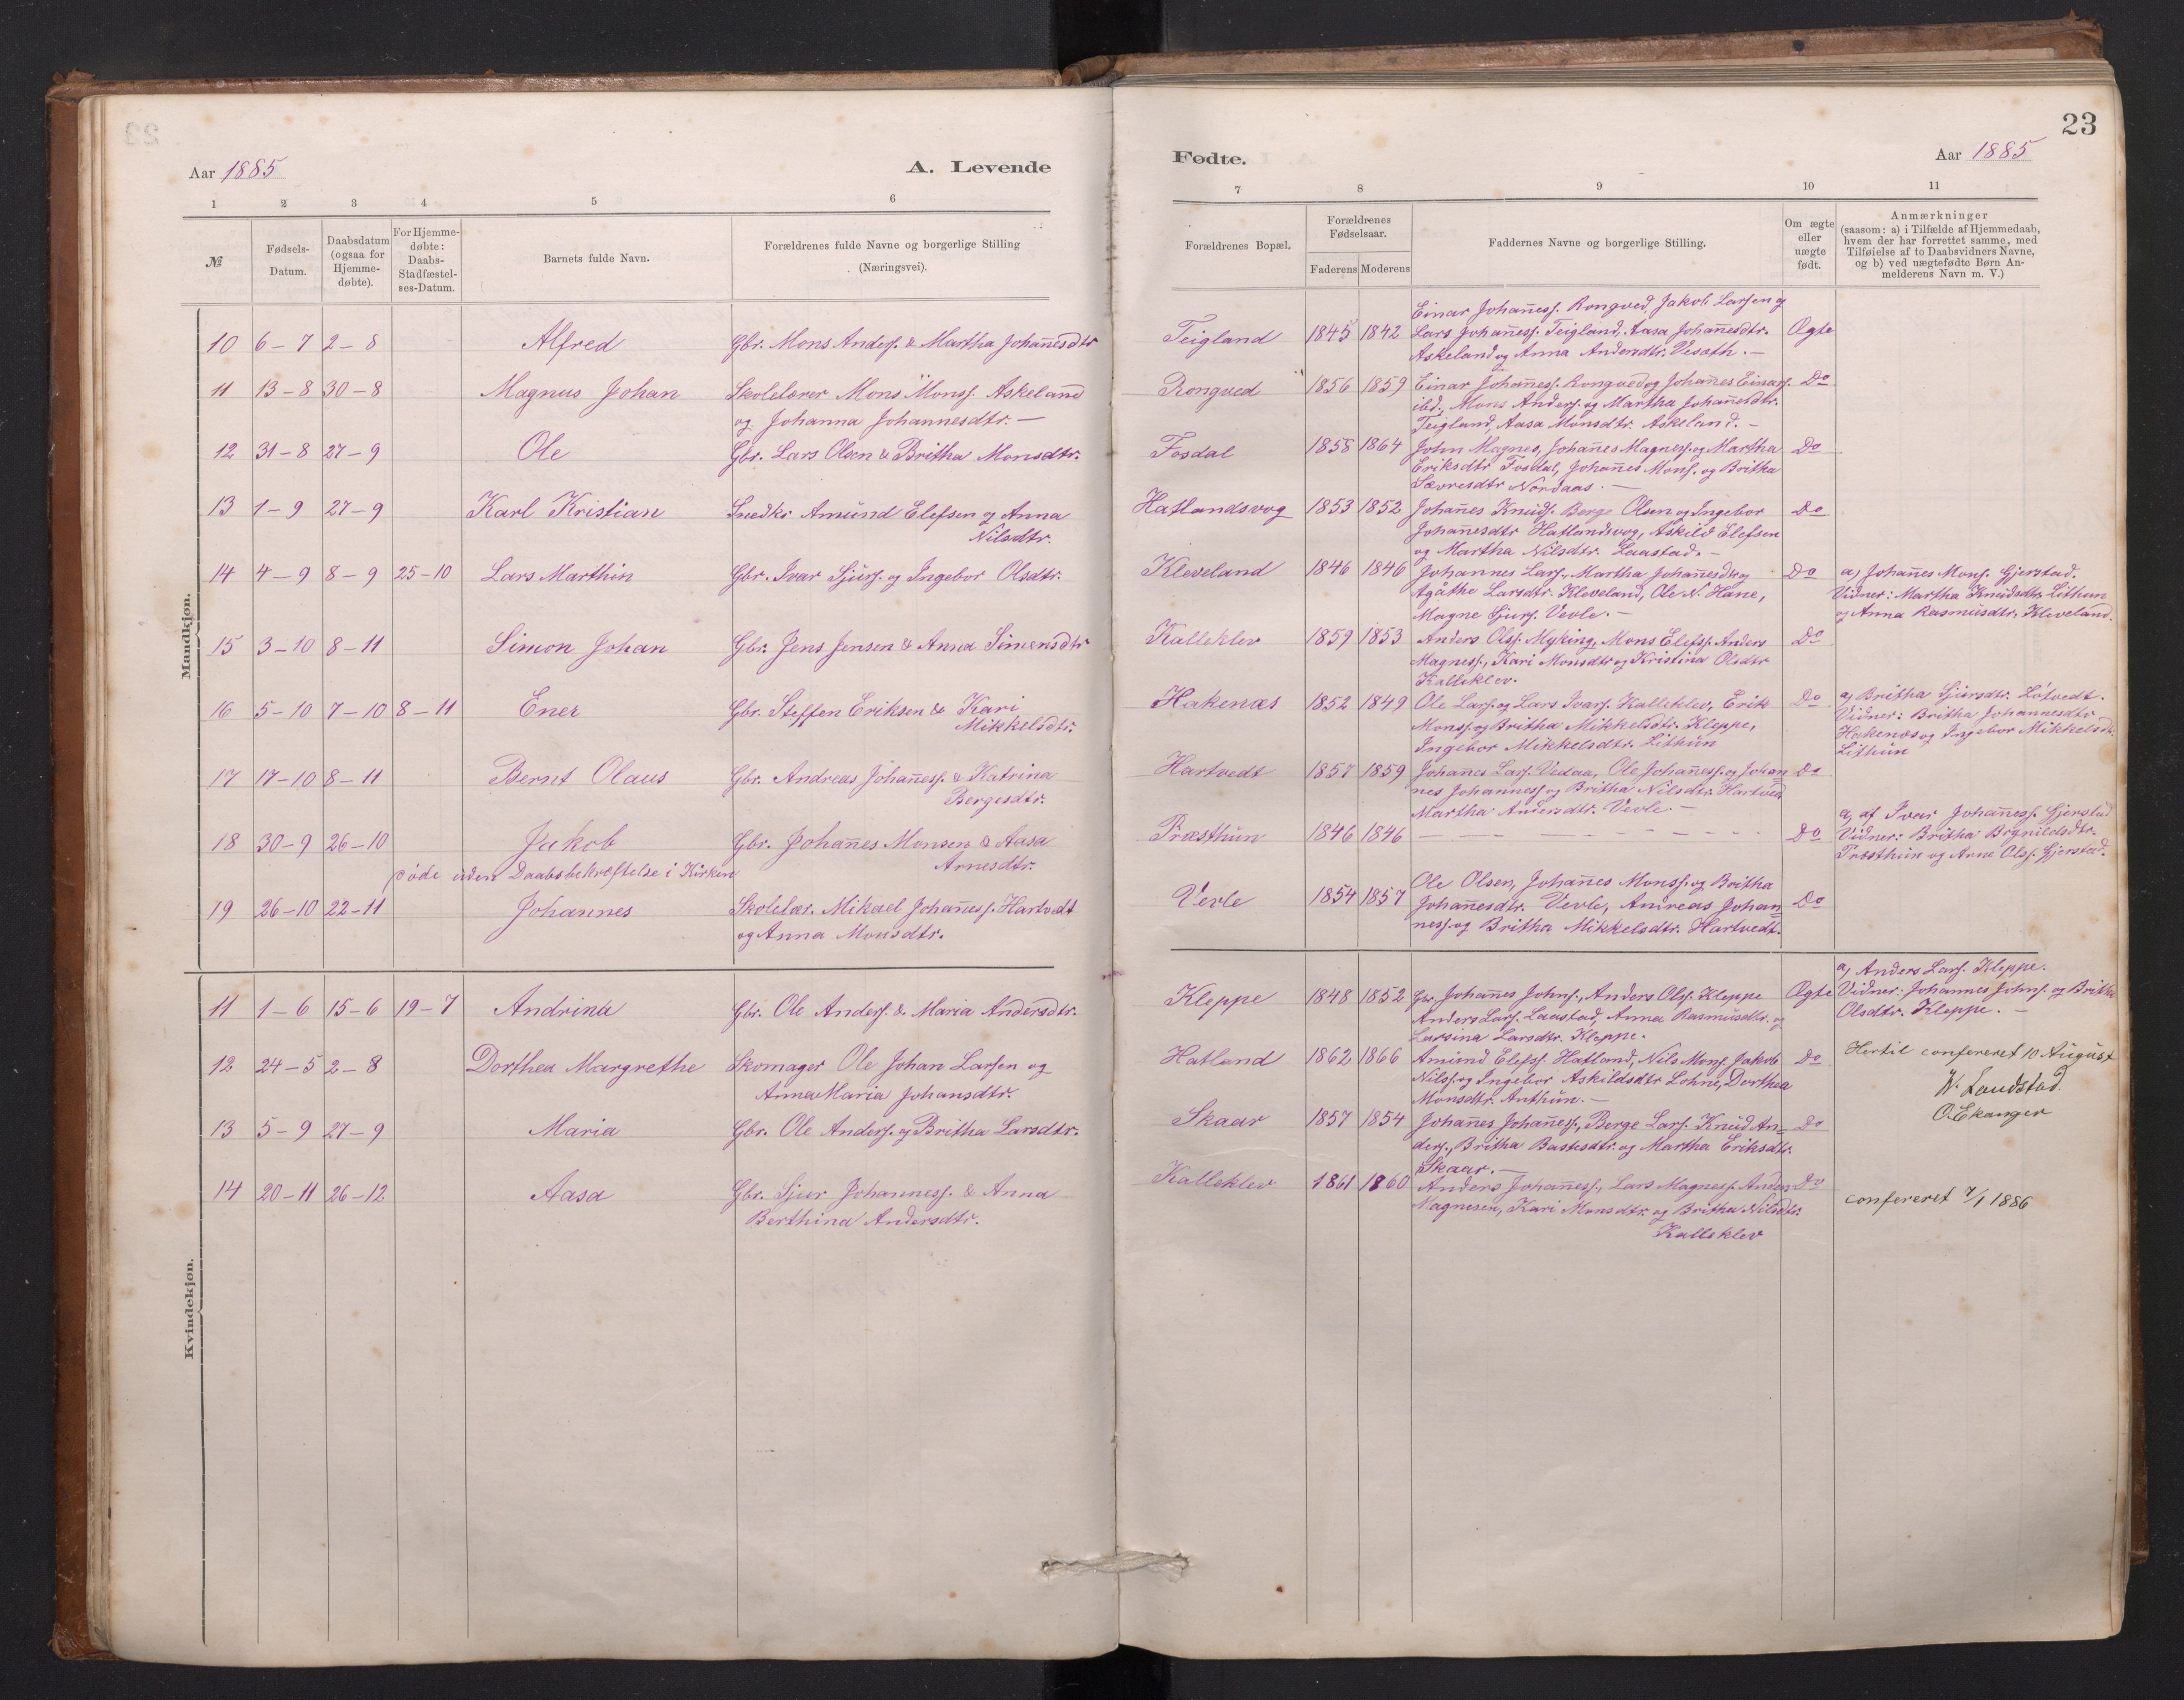 Aar 1885
A. Levende
1 2 3 4 5 6
№
Fødsels-
Datum.
Daabsdatum
(ogsaa for
Hjemme-
døbte).
For Hjemme-
døbte:
Daabs-
Stadfæstel-
ses-Datum.
Barnets fulde Navn.
Forældrenes fulde Navne og borgerlige Stilling
(Næringsvei).
Mandkjøn.
10 6-7 2-8 Alfred Gbr. Mons Anders. & Martha Johan̄esdtr
11 13-8 30-8 Magnus Johan Skolelærer Mons Monss. Askeland
og Johanna Johannesdtr. —
12 31-8 27-9 Ole Gbr. Lars Olsen & Britha Monsdtr.
13 1-9 27-9 Karl Kristian Snedkr Amund Elefsen og Anna
Nilsdtr.
14 4-9 8-9 25-10 Lars Marthin Gbr. Ivar Sjurs. og Ingebor Olsdtr.
15 3-10 8-11 Simon Johan Gbr. Jens Jensen & Anna Simensdtr
16 5-10 7-10 8-11 Ener Gbr. Steffen Eriksen & Kari
Mikkelsdtr.
17 17-10 8-11 Bernt Olaus Gbr. Andreas Johan̄ess. & Katrina
Bergesdtr.
18 30-9 26-10 Jakob Gbr. Johan̄es Monsen & Aasa
Arnesdtr.
døde uden Daabsbekræftelse i Kirken
19 26-10 22-11 Johannes Skolelær. Mikael Johan̄ess. Hartvedt
og Anna Monsdtr.
Kvindekjøn.
11 1-6 15-6 19-7 Andrina Gbr. Ole Anders. & Maria Andersdtr.
12 24-5 2-8 Dorthea Margrethe Skomager Ole Johan Larsen og
Anna Maria Johansdtr.
13 5-9 27-9 Maria Gbr. Ole Anders. og Britha Larsdtr.
14 20-11 26-12 Aasa Gbr. Sjur Johanness. & Anna
Berthina Andersdtr.
23
Fødte.
Aar 1885
7 8 9 10 11
Forældrenes Bopæl.
Forældrenes
Fødselsaar.
Faderens Moderens
Faddernes Navne og borgerlige Stilling.
Om ægte
eller
uægte
født.
Anmærkninger
(saasom: a) i Tilfælde af Hjemmedaab,
hvem der har forrettet samme, med
Tilføielse af to Daabsvidners Navne,
og b) ved uægtefødte Børn An-
melderens Navn m. V.)
Einar Johan̄ess. Rongved, Jakob Larsen og
Teigland 1845 1842 Lars Johan̄ess. Teigland, Aasa Johan̄esdtr. Ægte
Askeland og Anna Andersdtr. Vesæth. —
Rongved 1856 1859 Einar Johan̄ess. Rongved og Johan̄es Einars. Do
ibd., Mons Anders. og Martha Johan̄esdtr.
Teigland, Aasa Monsdtr. Askeland. —
Fosdal 1858 1864 John Magnes, Johan̄es Magness. og Martha Do
Eriksdtr Fosdal, Johan̄es Mons. og Britha
Sævresdtr Nordaas. —
Hatlandsvog 1853 1852 Johan̄es Knuds. Berge Olsen og Ingebor Do
Johan̄esdtr Hatlandsvog, Askild Elefsen
og Martha Nilsdtr. Laastad. —
Kleveland 1846 1846 Johannes Lars., Martha Johan̄esdtr og Do a) Johan̄es Mons. Gjerstad.
Agåthe Larsdtr. Kleveland, Ole N. Hane, Vidner: Martha Knudsdtr. Lithun
Magne Sjurs. Vevle. — og Anna Rasmusdtr. Kleveland.
Kalleklev 1859 1853 Anders Olss. Myking, Mons Elefss. Anders Do
Magness., Kari Monsdtr og Kristina Olsdtr
Kalleklev.
Hakenæs 1852 1849 Ole Lars. og Lars Ivars. Kalleklev, Erik Do a) Britha Sjursdtr. Løtvedt.
Monss. og Britha Mikkelsdtr. Kleppe, Vidner: Britha Johannesdtr
Ingebor Mikkelsdtr. Lithun Hakenæs og Ingebor Mikkelsdtr.
Lithun
Hartvedt 1857 1859 Johan̄es Lars. Vedaa, Ole Johan̄ess. og Johan Do
nes Johanness. og Britha Nilsdtr. Hartved
Martha Andersdtr. Vevle. —
Præsthun 1846 1846 — — — — — Do a) af Ivar Johan̄ess. Gjerstad
Vidner: Britha Bognildsdtr.
Præsthun og Arne Olss. Gjerstad.
Vevle 1854 1857 Ole Olsen, Johan̄es Monss. og Britha
Johan̄esdtr. Vevle, Andreas Johan= Do
ness. og Britha Mikkelsdtr. Hartvedt.
Kleppe 1848 1852 Gbr. Johan̄es Johns., Anders Olss. Kleppe Ægte a) Anders Lars. Kleppe.
Anders Lars. Laastad, Anna Rasmusdtr. og Vidner: Johannes Johns. og Britha
Larsina Larsdtr. Kleppe. Olsdtr. Kleppe. —
Hatland 1862 1866 Amund Elefss. Hatland, Nils Mons. Jakob Do Hertil confereret 10 August
Nilss. og Ingebor Askildsdtr Lohne, Dorthea W. Landstad
Monsdtr. Anthun. — O. Ekanger
Skaar 1857 1854 Johan̄es Johan̄ess., Berge Lars. Knud An= Do
ders., Britha Bastesdtr. og Martha Eriksdtr.
Skaar. —
Kalleklev 1861 1860 Anders Johan̄ess., Lars Magness. Anders Do
Magnesen, Kari Monsdtr. og Britha Nilsdtr. confereret 7/1 1886
Kalleklev